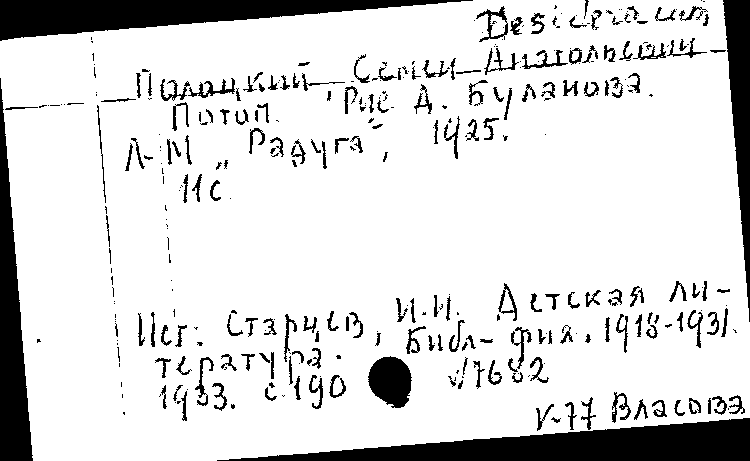 Desiderauis
Полоцкий, Семен Анатольевич
Потоп. Рис Д. Буланова.
Л-М „Радуга", 1925.
11с
Ист: Старцев, И.И. Детская ли-
тература. Библ-фия. 1918-1931.
1933. с.190 №7682
V-77 Власова